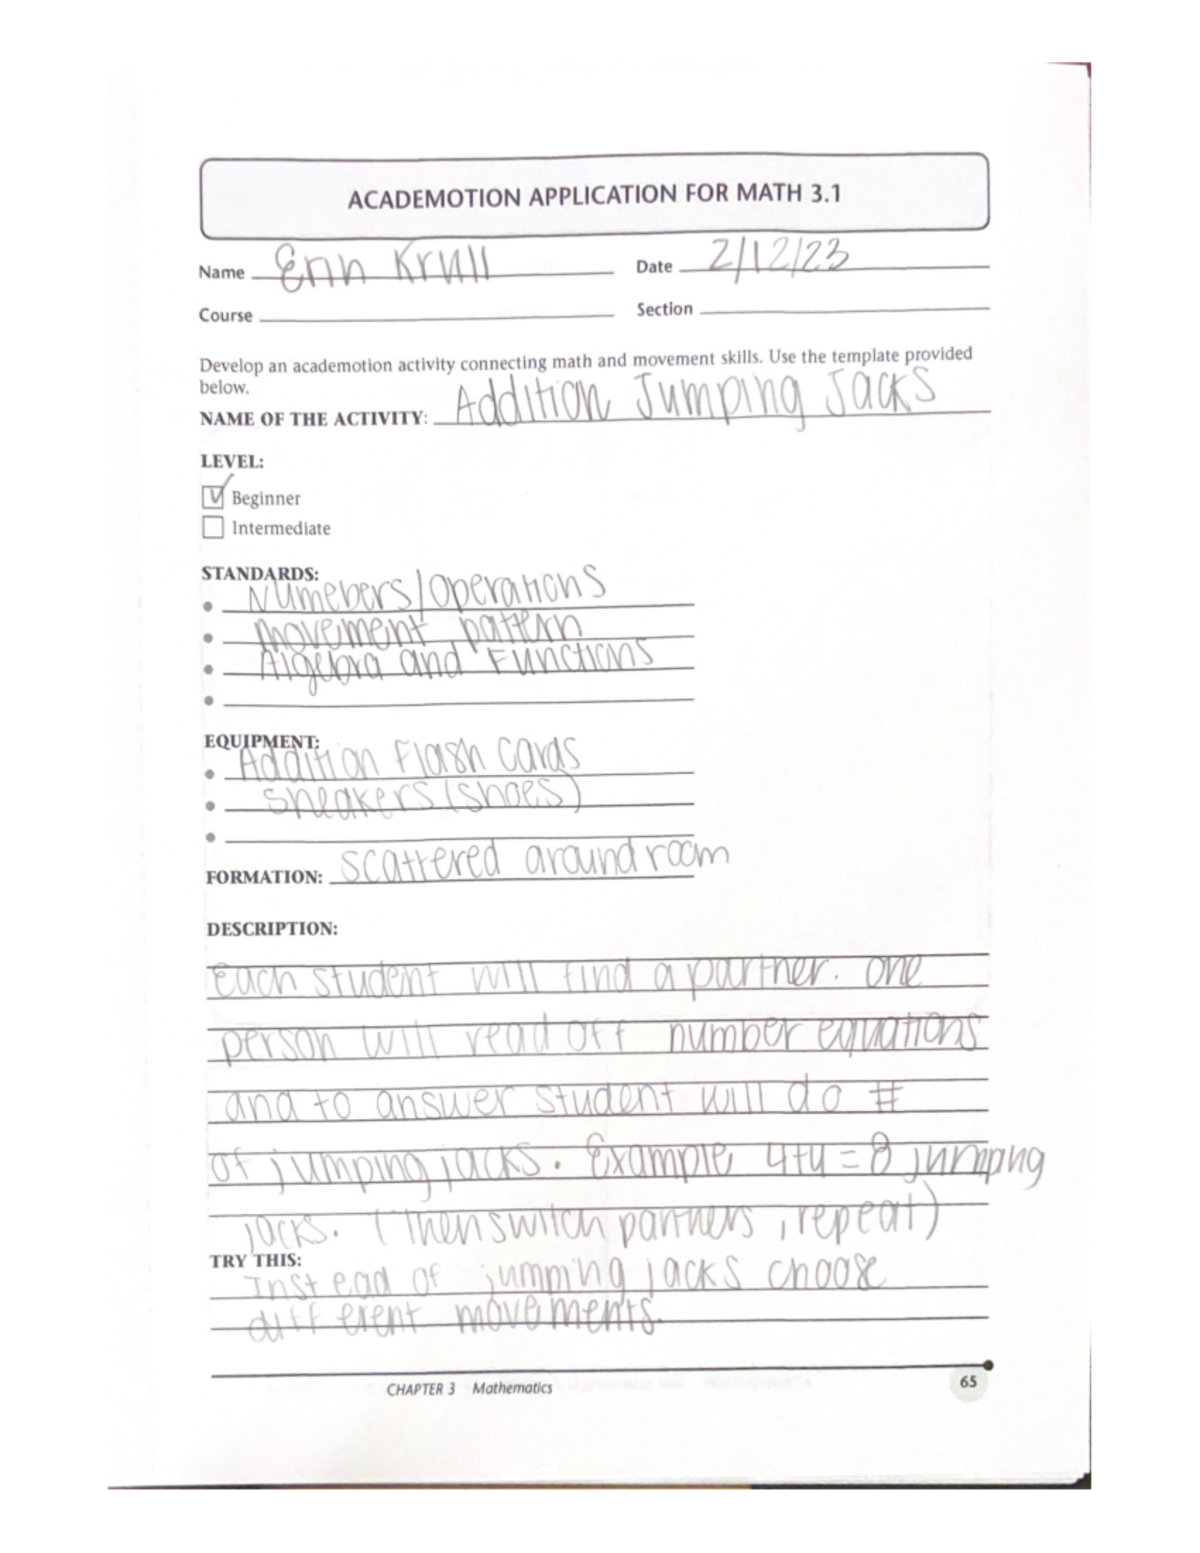 ACADEMOTION APPLICATION FOR MATH 3.1
Name Erin Krull Date 2/12/23
Course Section
Develop an academotion activity connecting math and movement skills. Use the template provided
below.
NAME OF THE ACTIVITY: Addition Jumping Jacks
LEVEL:
Beginner
Intermediate
STANDARDS:
Numebers/Operations
Movement pattern
Algebra and Functions
EQUIPMENT:
Addition Flash Cards
Sneakers (shoes)
FORMATION: scattered around room
DESCRIPTION:
each student will find a partner. one
person will read off number equations
and to answer student will do #
of jumping jacks. Example 4+4=8 jumping
jacks. (Then switch partners, repeat)
TRY THIS:
Instead of jumping jacks choose
different movements.
CHAPTER 3 Mathematics 65